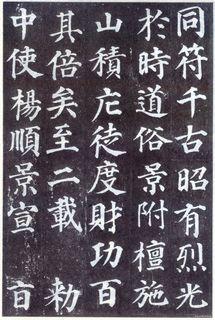 同符千古昭有烈光
於時道俗景附檀施
山積庀徒度財功百
其倍矣至二載 勑
中使楊順景宣 旨